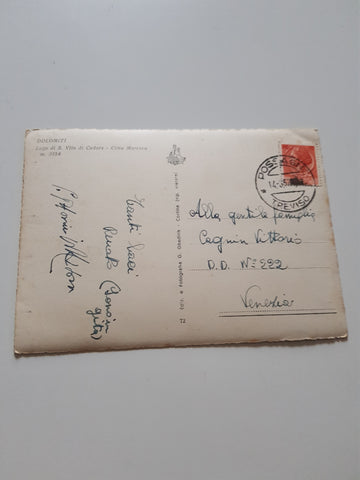 DOLOMITI
Lago di S. Vito di Cadore - Cima Marcora
m. 3154
Tanti baci
(Sono in
gita)
Ediz. e Fotografia G. Ghedina - Cortina (rip. vietata)
72
POSSAGNO
TREVISO
Alla gentile famiglia
Cagnin Vittorio
D.D. N° 222
Venezia